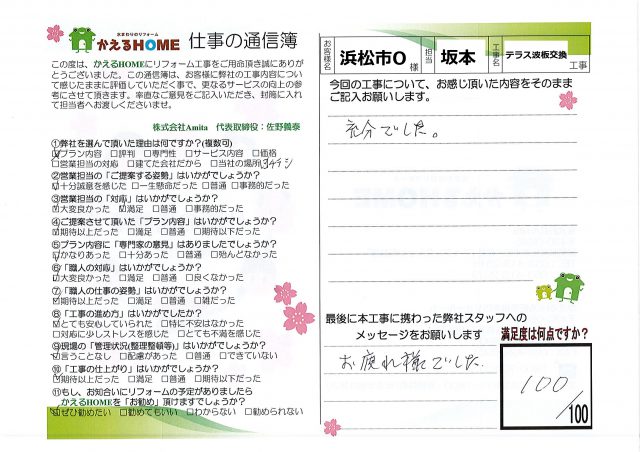 水まわりのリフォーム
かえるHOME 仕事の通信簿
この度は、かえるHOMEにリフォーム工事をご用命頂き誠にありが
とうございました。この通信簿は、お客様に弊社の工事内容について
感じたままに評価していただく事で、更なるサービスの向上の参
考にさせて頂きます。率直なご意見をご記入いただき、封筒に入れ
て担当者へお渡しくださいませ。
株式会社Amita 代表取締役:佐野義泰
①弊社を選んで頂いた理由は何ですか?(複数可)
☑プラン内容 □評判 □専門性 □サービス内容 □価格
□営業担当の対応 □建てた会社だから □当社の場所
②営業担当の「ご提案する姿勢」はいかがでしょうか?
☑十分誠意を感じた □一生懸命だった □普通 □事務的だった
③営業担当の「対応」はいかがでしょうか?
☑大変良かった ☑満足 □普通 □事務的だった
④ご提案させて頂いた「プラン内容」はいかがでしょうか?
☑期待以上だった □満足 □普通 □期待以下だった
⑤プラン内容に「専門家の意見」はありましたでしょうか?
☑かなりあった □十分あった □普通 □殆んどなかった
⑥「職人の対応」はいかがでしょうか?
☑大変良かった □満足 □普通 □良くなかった
⑦「職人の仕事の姿勢」はいかがでしょうか?
☑期待以上だった □満足 □普通 □雑だった
⑧「工事の進め方」はいかがでしたか?
☑とても安心していられた □特に不安はなかった
□対応に少しストレスを感じた □とても不満を感じた
⑨現場の「管理状況(整理整頓等)」はいかがでしょうか?
☑言うことなし □配慮があった □普通 □できていない
⑩「工事の仕上がり」はいかがでしょうか?
☑期待以上だった □満足 □普通 □期待以下だった
⑪もし、お知合いにリフォームの予定がありましたら
かえるHOMEを「お勧め」頂けますでしょうか?
☑ぜひ勧めたい □勧めてもいい □わからない □勧められない
お客様名 浜松市O 様 担当 坂本 工事名 テラス波板交換 工事
今回の工事について、お感じ頂いた内容をそのまま
ご記入お願いします。
充分でした。
最後に本工事に携わった弊社スタッフへの
メッセージをお願いします
お疲れ様でした
満足度は何点ですか?
100
/100